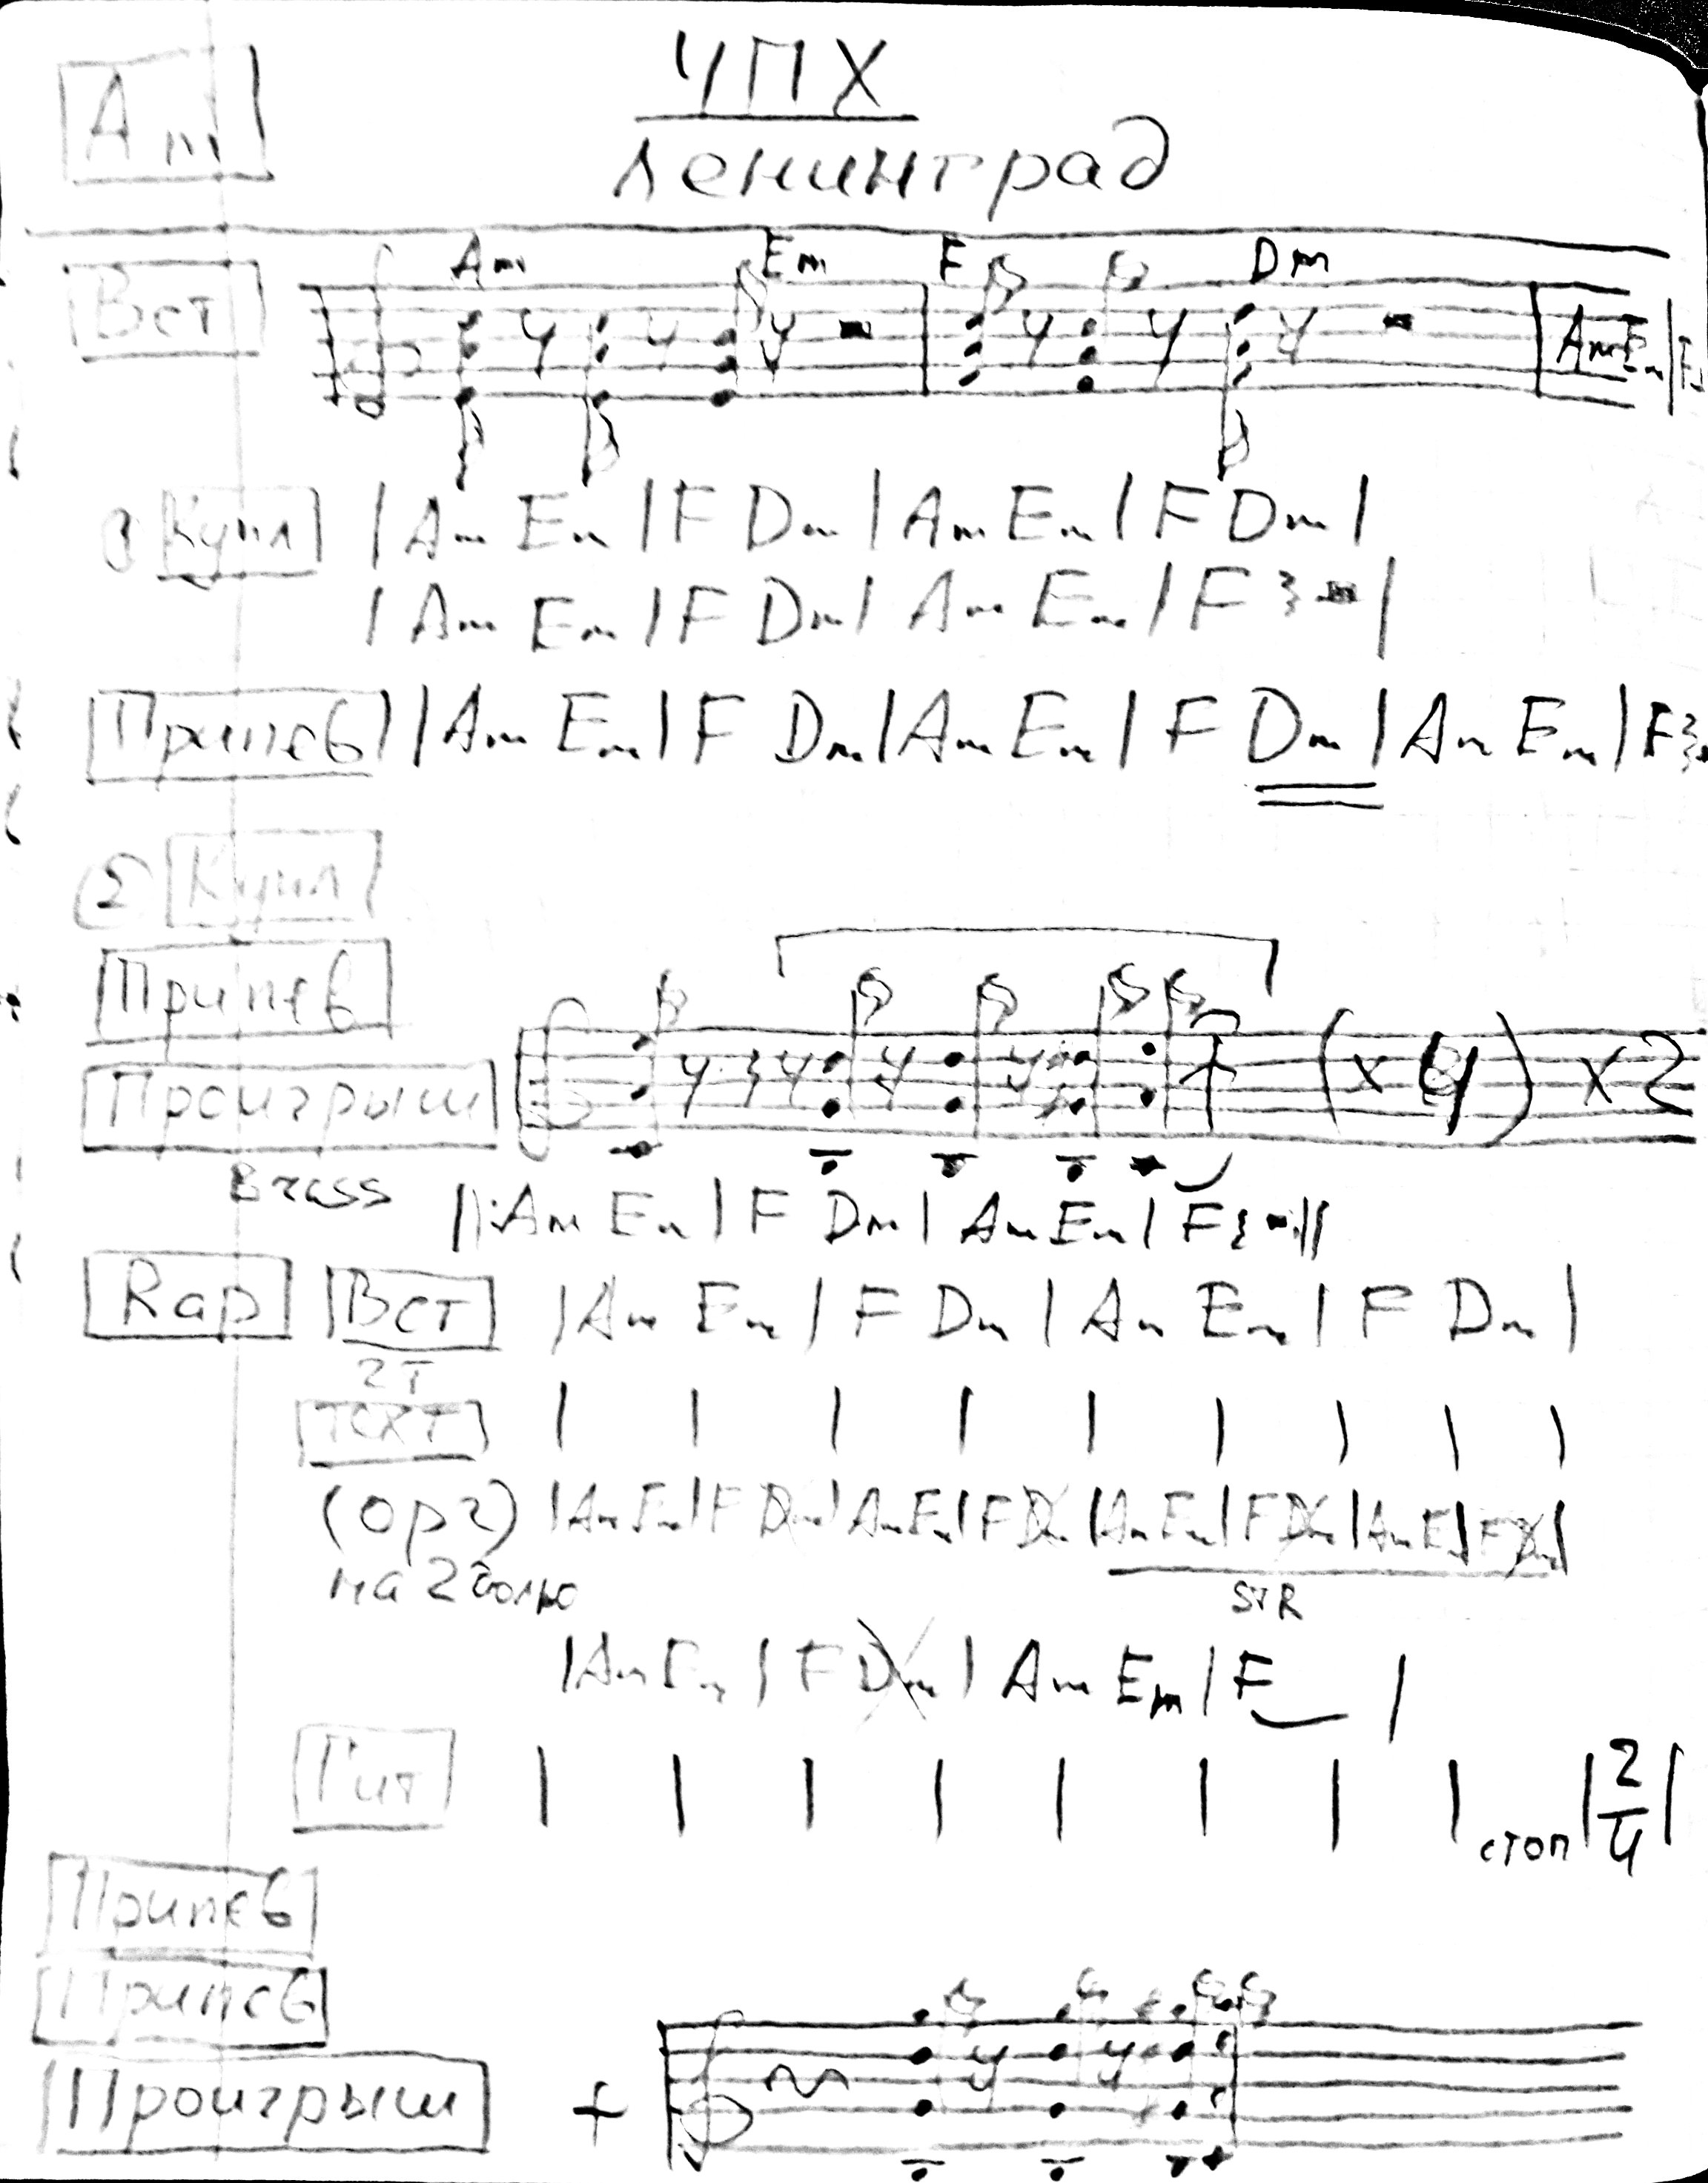 ЧПХ
Am
Ленинград
Am Em F Dm
Вст
Am Em | F
Купл | Am Em | F Dm | Am Em | F Dm |
| Am Em | F Dm | Am Em | F |
Припев | Am Em | F Dm | Am Em | F Dm | Am Em | F
2 Купл
Припев
Проигрыш (x 4) x2
Brass
||: Am Em | F Dm | Am Em | F :||
Rap Вст | Am Em | F Dm | Am Em | F Dm |
2т
текст | | | | | | | | |
(орг) | Am Em | F Dm | Am Em | F Dm | Am Em | F Dm | Am Em | F Dm |
на 2 долю
STR
| Am Em | F Dm | Am Em | F |
Гит | | | | | | | | стоп | 2/4 |
Припев
Припев
Проигрыш +